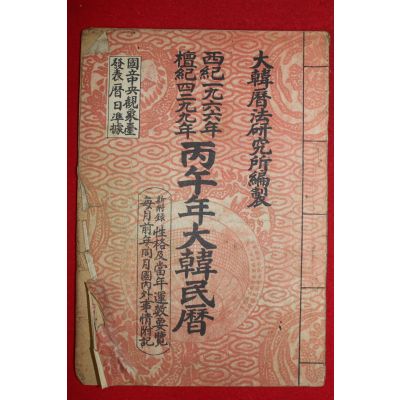 大韓曆法硏究所編製
西紀一九六六年
檀紀四二九九年
丙午年大韓民曆
國立中央觀象臺
發表曆日準據
新附錄
性格及當年運數要覽
每月前年同月國內外事情附記